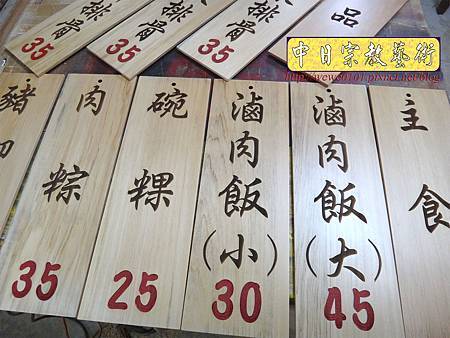 排骨
35
排骨
35
排骨
35
品
中日宗教藝術
肉粽
35
碗粿
25
滷肉飯(小)
30
滷肉飯(大)
45
主食